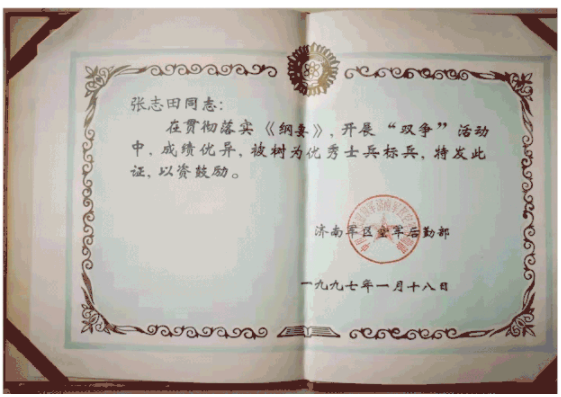 张志田同志:
在贯彻落实《纲要》,开展“双争”活动
中,成绩优异,被树为优秀士兵标兵,特发此
证,以资鼓励。
济南军区空军后勤部
一九九七年一月十八日